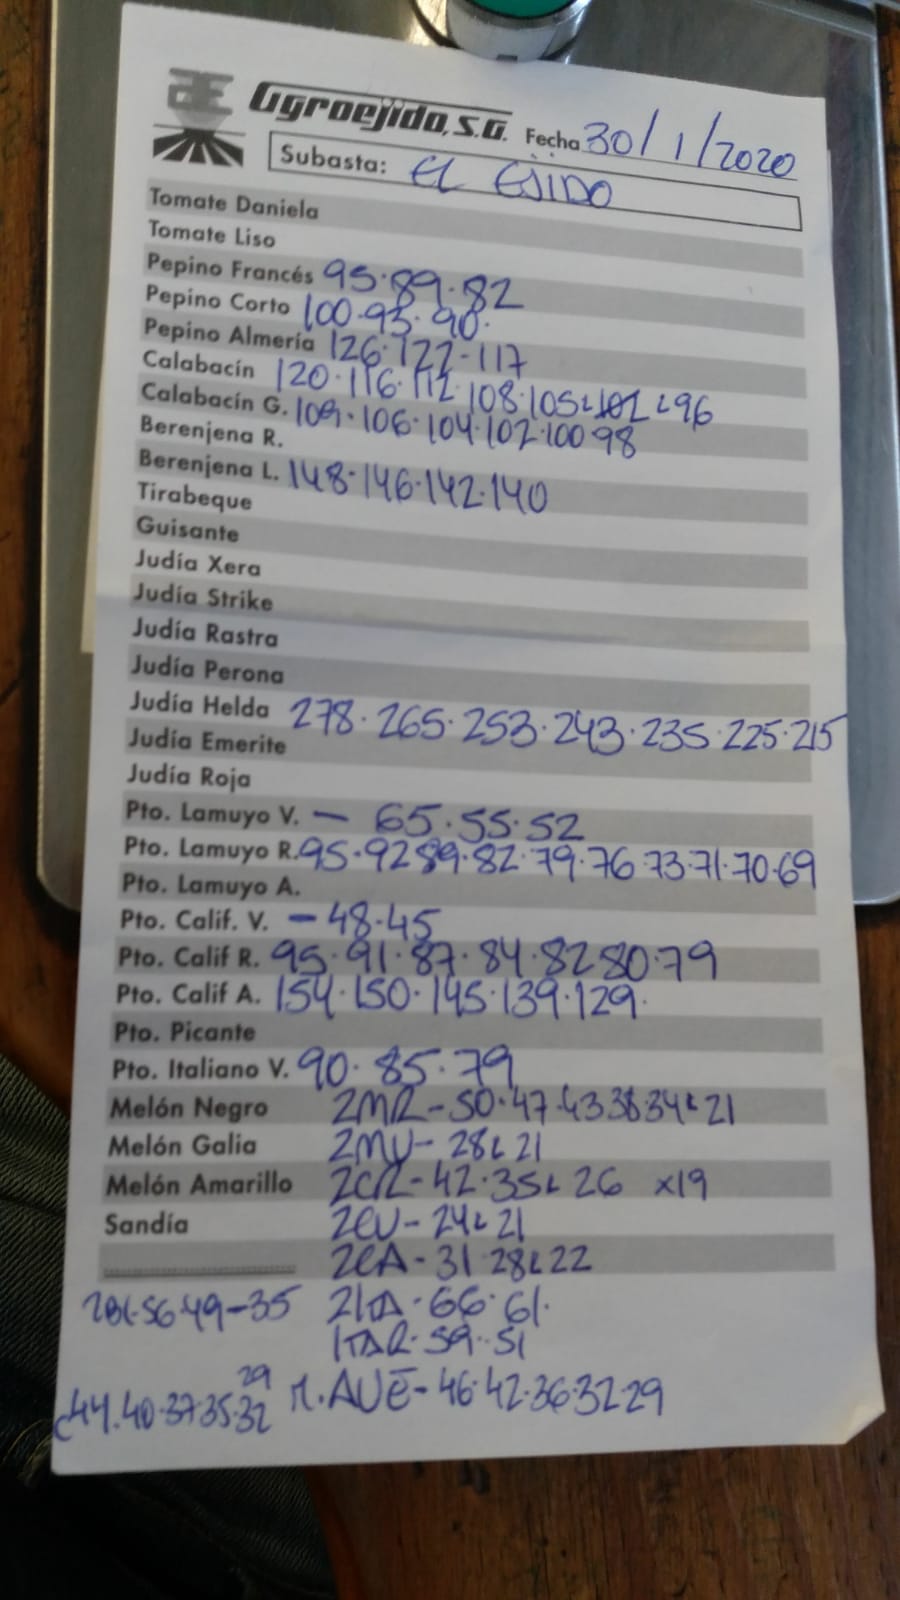 Agroejido, S.A. Fecha 30/1/2020
Subasta: EL EJIDO
Tomate Daniela
Tomate Liso
Pepino Francés 95.89.82
Pepino Corto 100.93.90.
Pepino Almería 126.122-117
Calabacín 120.116.112.108.105L102L96
Calabacín G. 109.106.104.102.100 98
Berenjena R.
Berenjena L. 148.146.142.140
Tirabeque
Guisante
Judía Xera
Judía Strike
Judía Rastra
Judía Perona
Judía Helda 278.265.253.243.235.225.215
Judía Emerite
Judía Roja
Pto. Lamuyo V. - 65.55.52
Pto. Lamuyo R. 95.92 89.82.79.76 73.71.70.69
Pto. Lamuyo A.
Pto. Calif. V. - 48.45
Pto. Calif R. 95.91.87.84.82 80.79
Pto. Calif A. 154.150.145.139.129.
Pto. Picante
Pto. Italiano V. 90.85.79
Melón Negro 2MR-50.47.43 38 34L21
Melón Galia 2MV-28L21
Melón Amarillo 2CR-42.35L26 x19
Sandía 2CV-24L21
2CA-31 28L22
56.49-35 2ITA-66.61.
ITAR.59.51
29
44.40.37.35.32 M.AVE-46.42.36.32.29